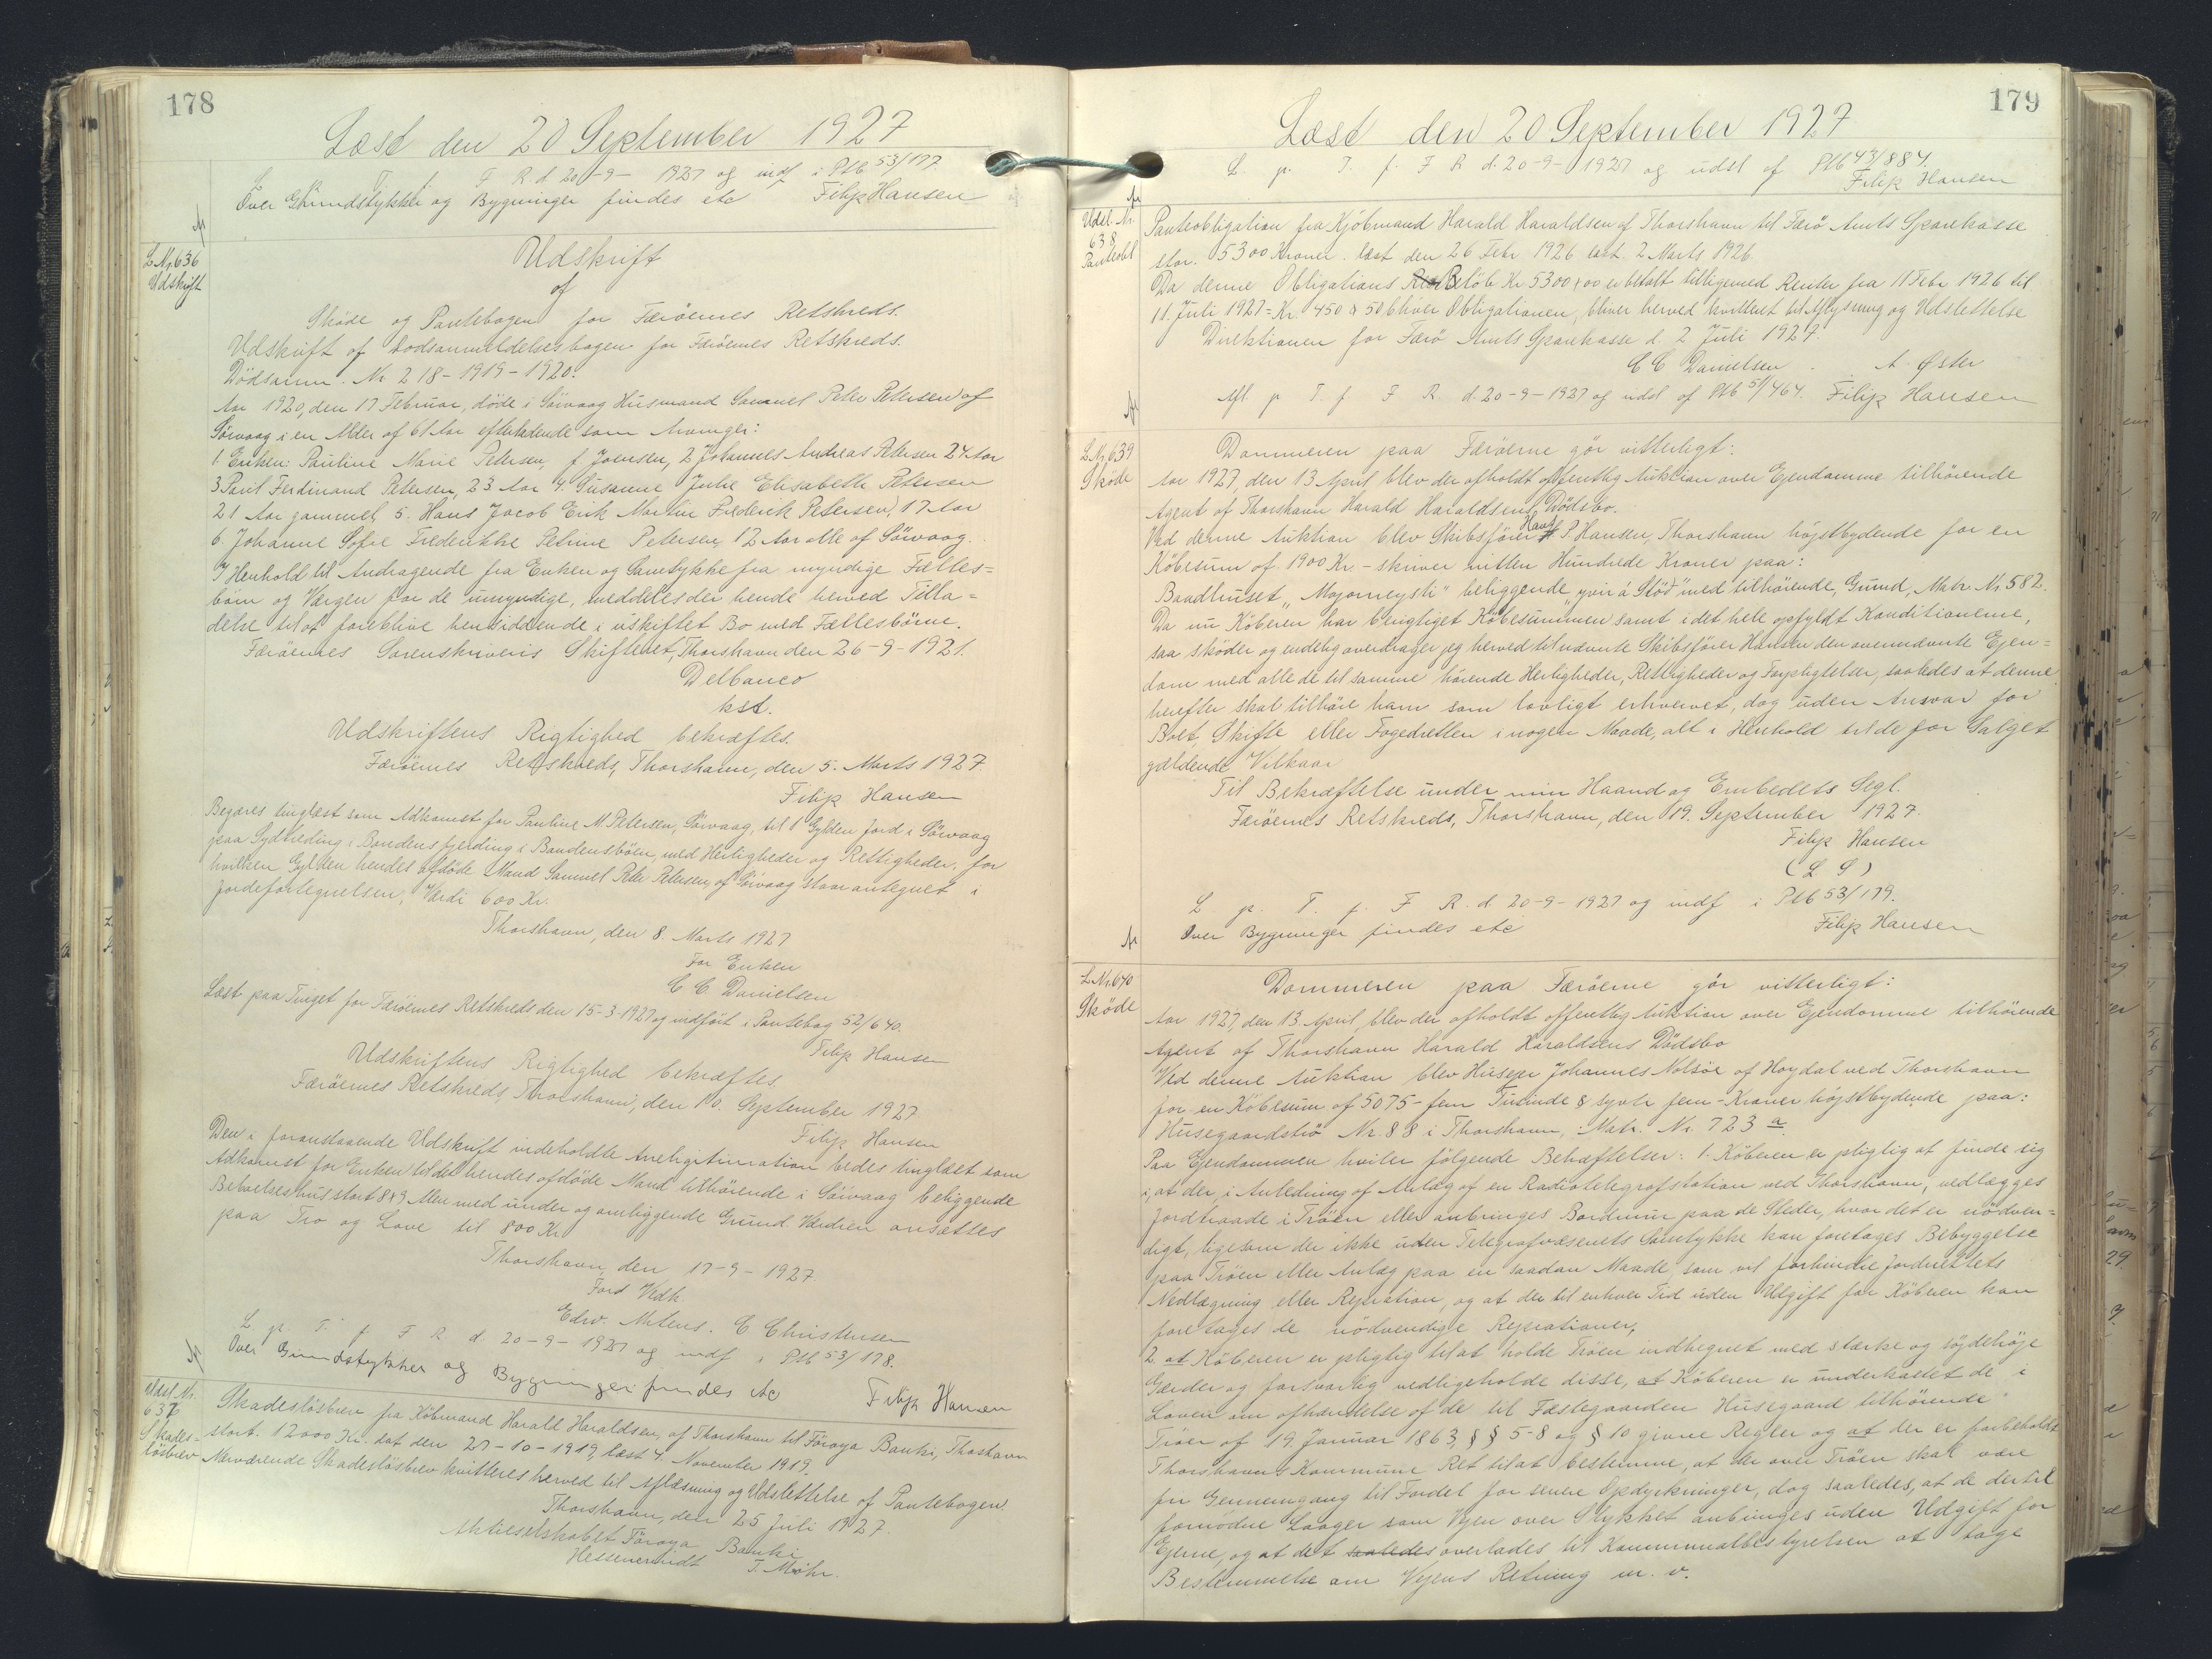 178
Læst den 20 September 1927
L p T f F R d 20-9-1927 og indf i Ptb 53/177.
Over Grundstykke og Bygninger findes etc Filip Hansen
L Nr. 636
Udskrift
Udskrift
af
Sköde og Pantebogen for Færöernes Retskreds.
Udskrift af Dodsanmeldelsesbogen for Færöernes Retskreds.
Dödsanm. Nr 218-1919-1920.
Aar 1920, den 17 Februar, döde i Sörvaag Husmand Samuel Peter Petersen af
Sörvaag i en Alder af 61 Aar efterladende som Arvinger:
1. Enken: Pauline Marie Petersen, f Joensen, 2 Johannes Andreas Petersen 24 Aar
3 Poul Ferdinand Petersen, 23 Aar 4 Susanne Julie Elisabeth Petersen
21 Aar gammel, 5. Hans Jacob Erik Martin Frederik Petersen, 17 Aar
6. Johanne Sofie Frederikke Petrine Petersen, 12 Aar alle af Sörvaag.
I Henhold til Andragende fra Enken og Samtykke fra myndige Fælles=
börn og Værgen for de umyndige, meddeles der hende herved Tilla=
delse til at forblive hensiddende i uskiftet Bo med Fællesbörne.
Færöernes Sorenskriveris Skifteret, Thorshavn den 26-9-1921.
Delbanco
kst.
Udskriftens Rigtighed bekræftes.
Færöernes Retskreds, Thorshavn, den 5. Marts 1927
Filip Hansen
Begæres tinglæst som Adkomst for Pauline M. Petersen, Sörvaag, til 1 Gylden Jord i Sörvaag
paa Sydtreding i Bondens fjerding i Bondensböen, med Herligheder og Rettigheder, for
hvilken Gylden hendes afdöde Mand Samuel Peter Petersen, af Sörvaag staar antegnet i
jordefortegnelsen, Værdi 600 Kr.
Thorshavn, den 8. Marts 1927
For Enken
C C. Danielsen
Læst paa Tinget for Færöernes Retskreds den 15-3-1927 og indfört i Pantebog 52/640.
Filip Hansen
Udskriftens Rigtighed bekræftes
Færöernes Retskreds, Thorshavn, den 10. September 1927
Filip Hansen
Den i foranstaaende Udskrift indeholdte Arvelegitimation bedes tinglæst som
Adkomst for Enken til det hendes afdöde Mand tilhörende i Sörvaag beliggende
Beboelseshus stort 8x9 Alen med under og omliggende Grund. Værdien ansættes
paa Tro og Love til 800 Kr
Thorshavn, den 17-9-1927
Ford Vedk.
Edw. Mitens. C Christensen
L p. T. f. F R d. 20-9-1927 og indf i Ptb 53/178.
Over Grundstykker og Bygninger findes etc Filip Hansen
Udsl. Nr.
637
Skades-
lösbrev
Skadeslösbrev fra Köbmand Harald Haraldsen, af Thorshavn til Föroya Banki, Thorshavn
stort. 12000 Kr. dat den 27-10-1919, læst 4. November 1919.
Nærværende Skadeslösbrev kvitteres herved til Aflæsning og Udslettelse af Pantebogen.
Thorshavn, den 25 Juli 1927.
Aktieselskabet Föroya Banki
T. Mohr.
179
Læst den 20 September 1927
L p. T. f. F R d. 20-9-1927 og udsl af Ptb 43/884.
Filip Hansen
Udsl. Nr.
638
Panteobl
Panteobligation fra Kjöbmand Harald Haraldsen af Thorshavn til Færö Amts Sparekasse
stor. 5300 Kroner. læst den 26 Febr 1926 2 Marts 1926
Da denne Obligations Belöb Kr 5300,00 er betalt tilligemed Renter fra 11 Febr 1926 til
11. Juli 1927= Kr. 450 50 bliver Obligationen, bliver herved kvitteret til Aflysning og Udslettelse
Direktionen for Færö Amts Sparekasse d. 2 Juli 1927.
C C Danielsen . A. Øster
Afl. p T. f F R. d. 20-9-1927 og udsl af Ptb 51/464. Filip Hansen
L Nr. 639
Sköde
Dommeren paa Færöerne gör vitterligt:
Aar 1927, den 13 April blev der afholdt offentlig Auktion over Ejendomme tilhörende
Agent af Thorshavn Harald Haraldsens Dödsbo.
Ved denne Auktion blev Skibsförer Hans P. Hansen, Thorshavn höjstbydende for en
Köbesum af 1900 Kr. - skriver nitten Hundrede Kroner paa:
Baadhuset „Mogorneysti" beliggende „yvir á Stöd" med tilhörende, Grund, Matr. Nr. 582.
Da nu Köberen har berigtiget Köbesummen samt i det hele opfyldt Konditionerne,
saa sköder og endelig overdrager jeg herved til nævnte Skibsförer Hansen den ovennævnte Ejen=
dom med alle de til samme hörende Herligheder, Rettigheder og Forpligtelser, saaledes at denne
herefter skal tilhöre ham som lovligt erhvervet, dog uden Ansvar for
Boet, Skifte eller Fogedretten i nogen Maade, alt i Henhold til de for Salget
gældende Vilkaar
Til Bekræftelse under min Haand og Embedets Segl.
Færöernes Retskreds, Thorshavn, den 19. September 1927.
Filip Hansen
(L S)
L p. T. f. F R. d 20-9-1927 og indf i Ptb 53/179.
Over Bygninger findes etc Filip Hansen
L Nr. 640
Sköde
Dommeren paa Færöerne gör vitterligt:
Aar 1927, den 13. April, blev der afholdt offentlig Auktion over Ejendomme tilhörende
Agent af Thorshavn Harald Haraldsens Dödsbo
Ved denne Auktion blev Husejer Johannes Nolsöe af Hoydal ved Thorshavn
for en Köbesum af 5075 - fem Tusinde & syvti fem - Kroner höjstbydende paa:
Husegaardströ Nr. 88 i Thorshavn, Matr. Nr. 723 a.
Paa Ejendommen hviler fölgende Behæftelser: 1. Köberen er pligtig at finde sig
i, at der, i Anledning af Anlæg af en Radiotelegrafstation ved Thorshavn, nedlægges
Jordtraade i Tröen eller anbringes Bordmur paa de Steder, hvor det er nödven=
digt, ligesom der ikke uden Telegrafvæsenets Samtykke kan foretages Bebyggelse
paa Tröen eller Anlæg paa en saadan Maade, som vil forhindre Jordnettets
Nedlægning eller Repration, og at der til enhver Tid uden Udgift for Köberen kan
foretages de nödvendige Reprationer,
2. at Köberen er pligtig til at holde Tröen indhegnet med stærke og söjdehöje
Gærder og forsvarlig vedligeholde disse, at Köberen er underkastet de i
Loven om afhændelse af de til Fæstegaarden Husegaard tilhörende
Tröer af 19. Januar 1863, §§ 5-8 og § 10 givne Regler og at der er forbeholdt
Thorshavns Kommune Ret til at bestemme, at der over Tröen skal være
fri Gennemgang til Fordel for senere Opdyrkninger, dog saaledes, at de dertil
fornödne Laager som Vejen over Stykket anbringes uden Udgift for
Ejerne, og at det saaledes overlades til Kommunalbestyrelsen at tage
Bestemmelse om Vejens Retning m. v.